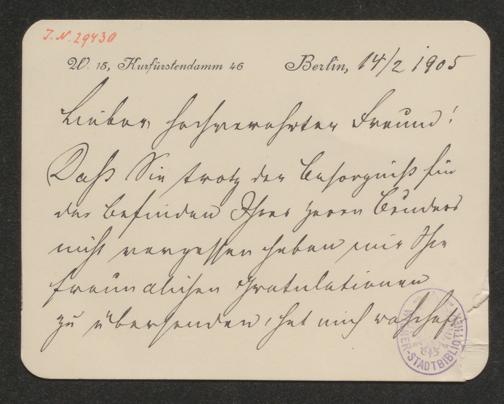 I.N. 29430
W. 15, Kurfürstendamm 46
Berlin, 14/2 1905
Lieber, hochverehrter Freund!
Daß Sie trotz der Besorgniß für
das Befinden Ihres Herrn Bruders
nicht vergessen haben mir Ihre
freundlichen Gratulationen
zu übersenden, hat mich wahrhaft
WIENER STADTBIBLIOTHEK